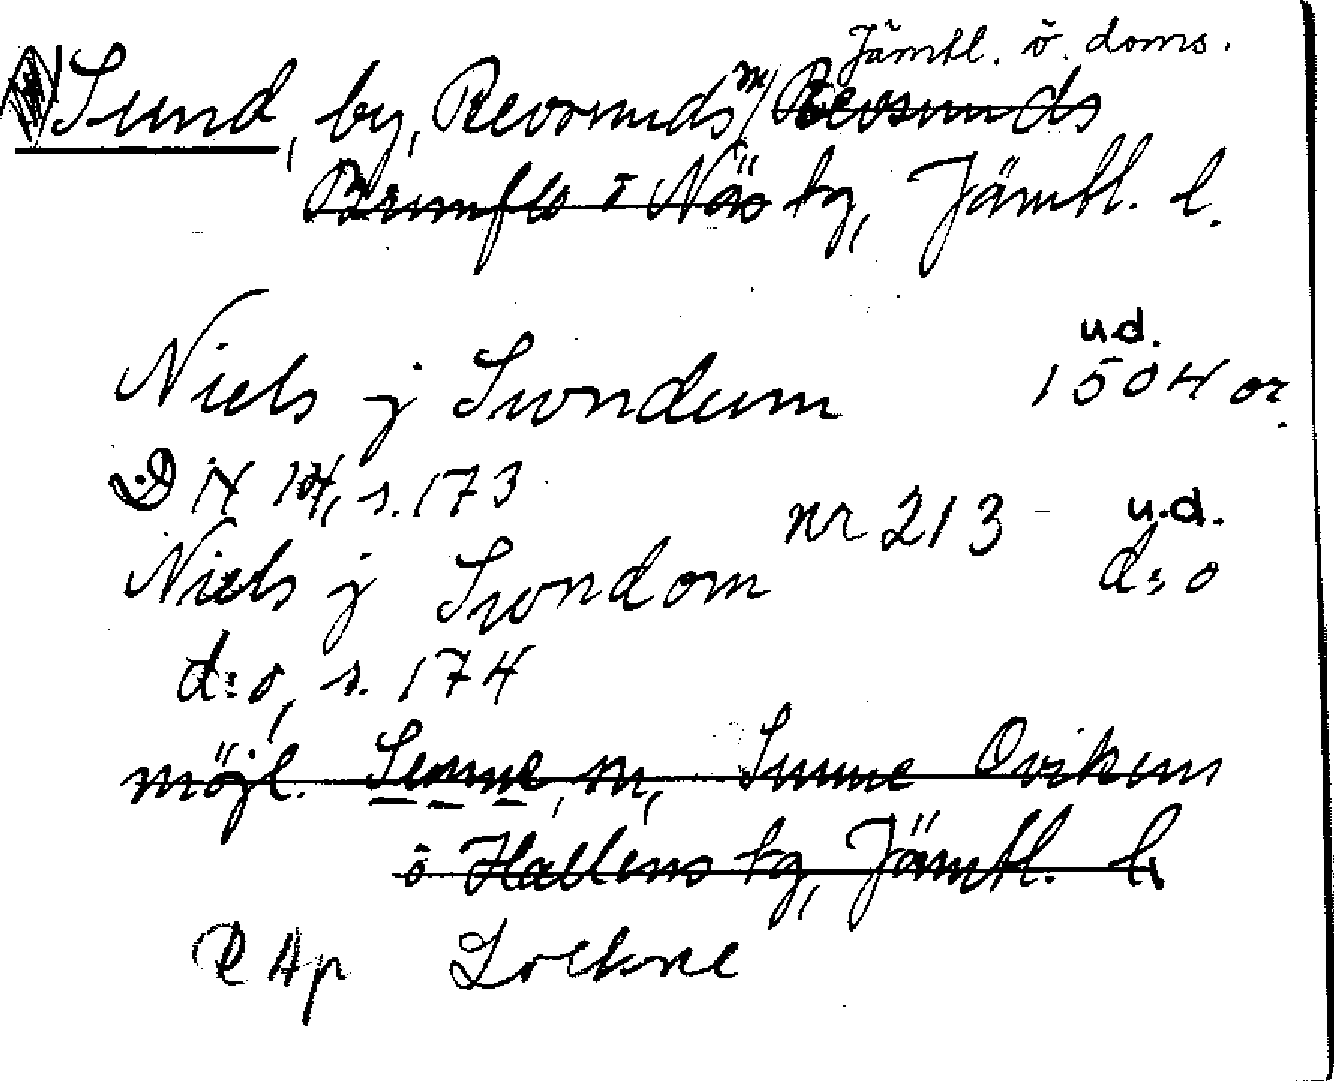 Jämtl. ö. doms.
Sund, by, Revsunds m/ Revsunds
Brunflo o Näs tg, Jämtl. l.
u.d.
Niels j Swndum 1504 or.
14, s. 173
nr 213 u.d.
Niels j Swndom d:o
d:o, s. 174
möjl. Sunne, sn, Sunne Ovikens
o Hallens tg, Jämtl. l.
RAp Lockne